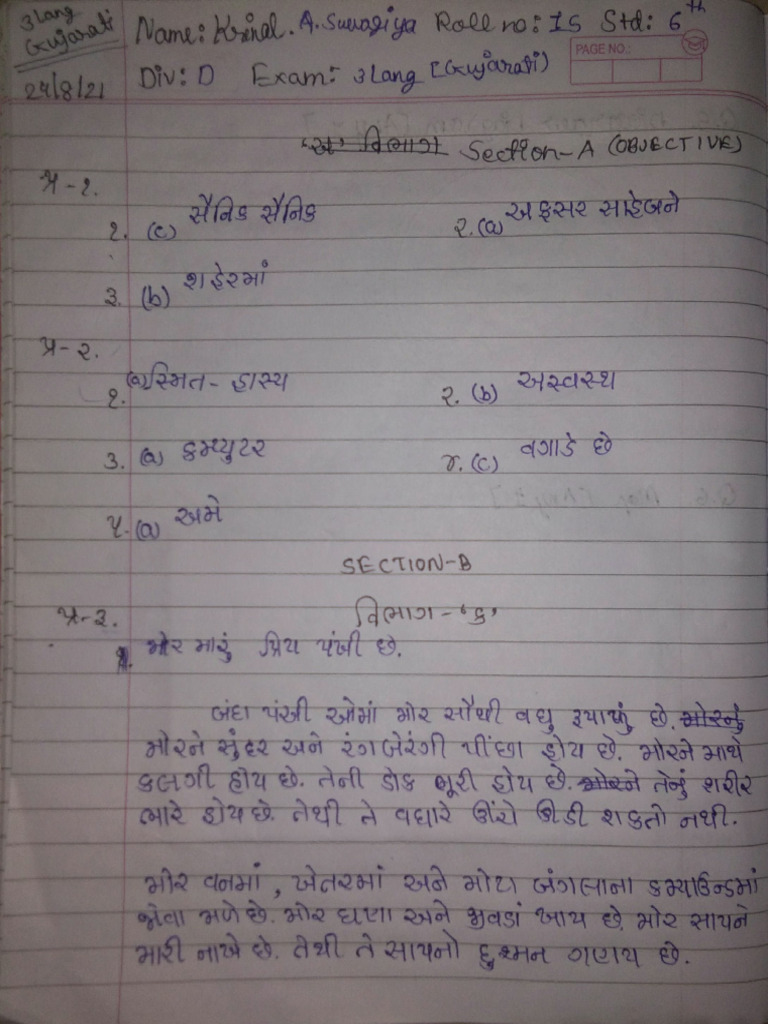 3 lang
Gujarati
24/8/21
Name: Krinal. A. Suvagiya Roll no: 15 Std: 6th
Div: D Exam: 3 lang [Gujarati)
PAGE NO.:
'અ' વિભાગ Section-A (OBJECTIVE)
પ્ર-૧.
૧. (c) સૈનિક સૈનિક ૨. (a) અફસર સાહેબને
૩. (b) શહેરમાં
પ્ર-૨.
૧. (a) સ્મિત - હાસ્ય ૨. (b) અસ્વસ્થ
૩. (a) કમ્પ્યુટર ૪. (c) વગાડે છે
૫. (a) અમે
SECTION-B
પ્ર-૩. વિભાગ-'ક'
૧. મોર મારું પ્રિય પંખી છે.
બંધા પંખી ઓમાં મોર સૌથી વધુ રૂપાળું છે. મોરનું
મોરને સુંદર અને રંગબેરંગી પીંછા હોય છે. મોરને માથે
કલગી હોય છે. તેની ડોક ભૂરી હોય છે. મોરને તેનું શરીર
ભારે હોય છે. તેથી તે વધારે ઊંચે ઊડી શકતો નથી.
મોર વનમાં, ખેતરમાં અને મોટા બંગલાના કમ્પાઉન્ડમાં
જોવા મળે છે. મોર દાણા અને જીવડાં ખાય છે. મોર સાપને
મારી નાખે છે. તેથી તે સાપનો દુશ્મન ગણાય છે.